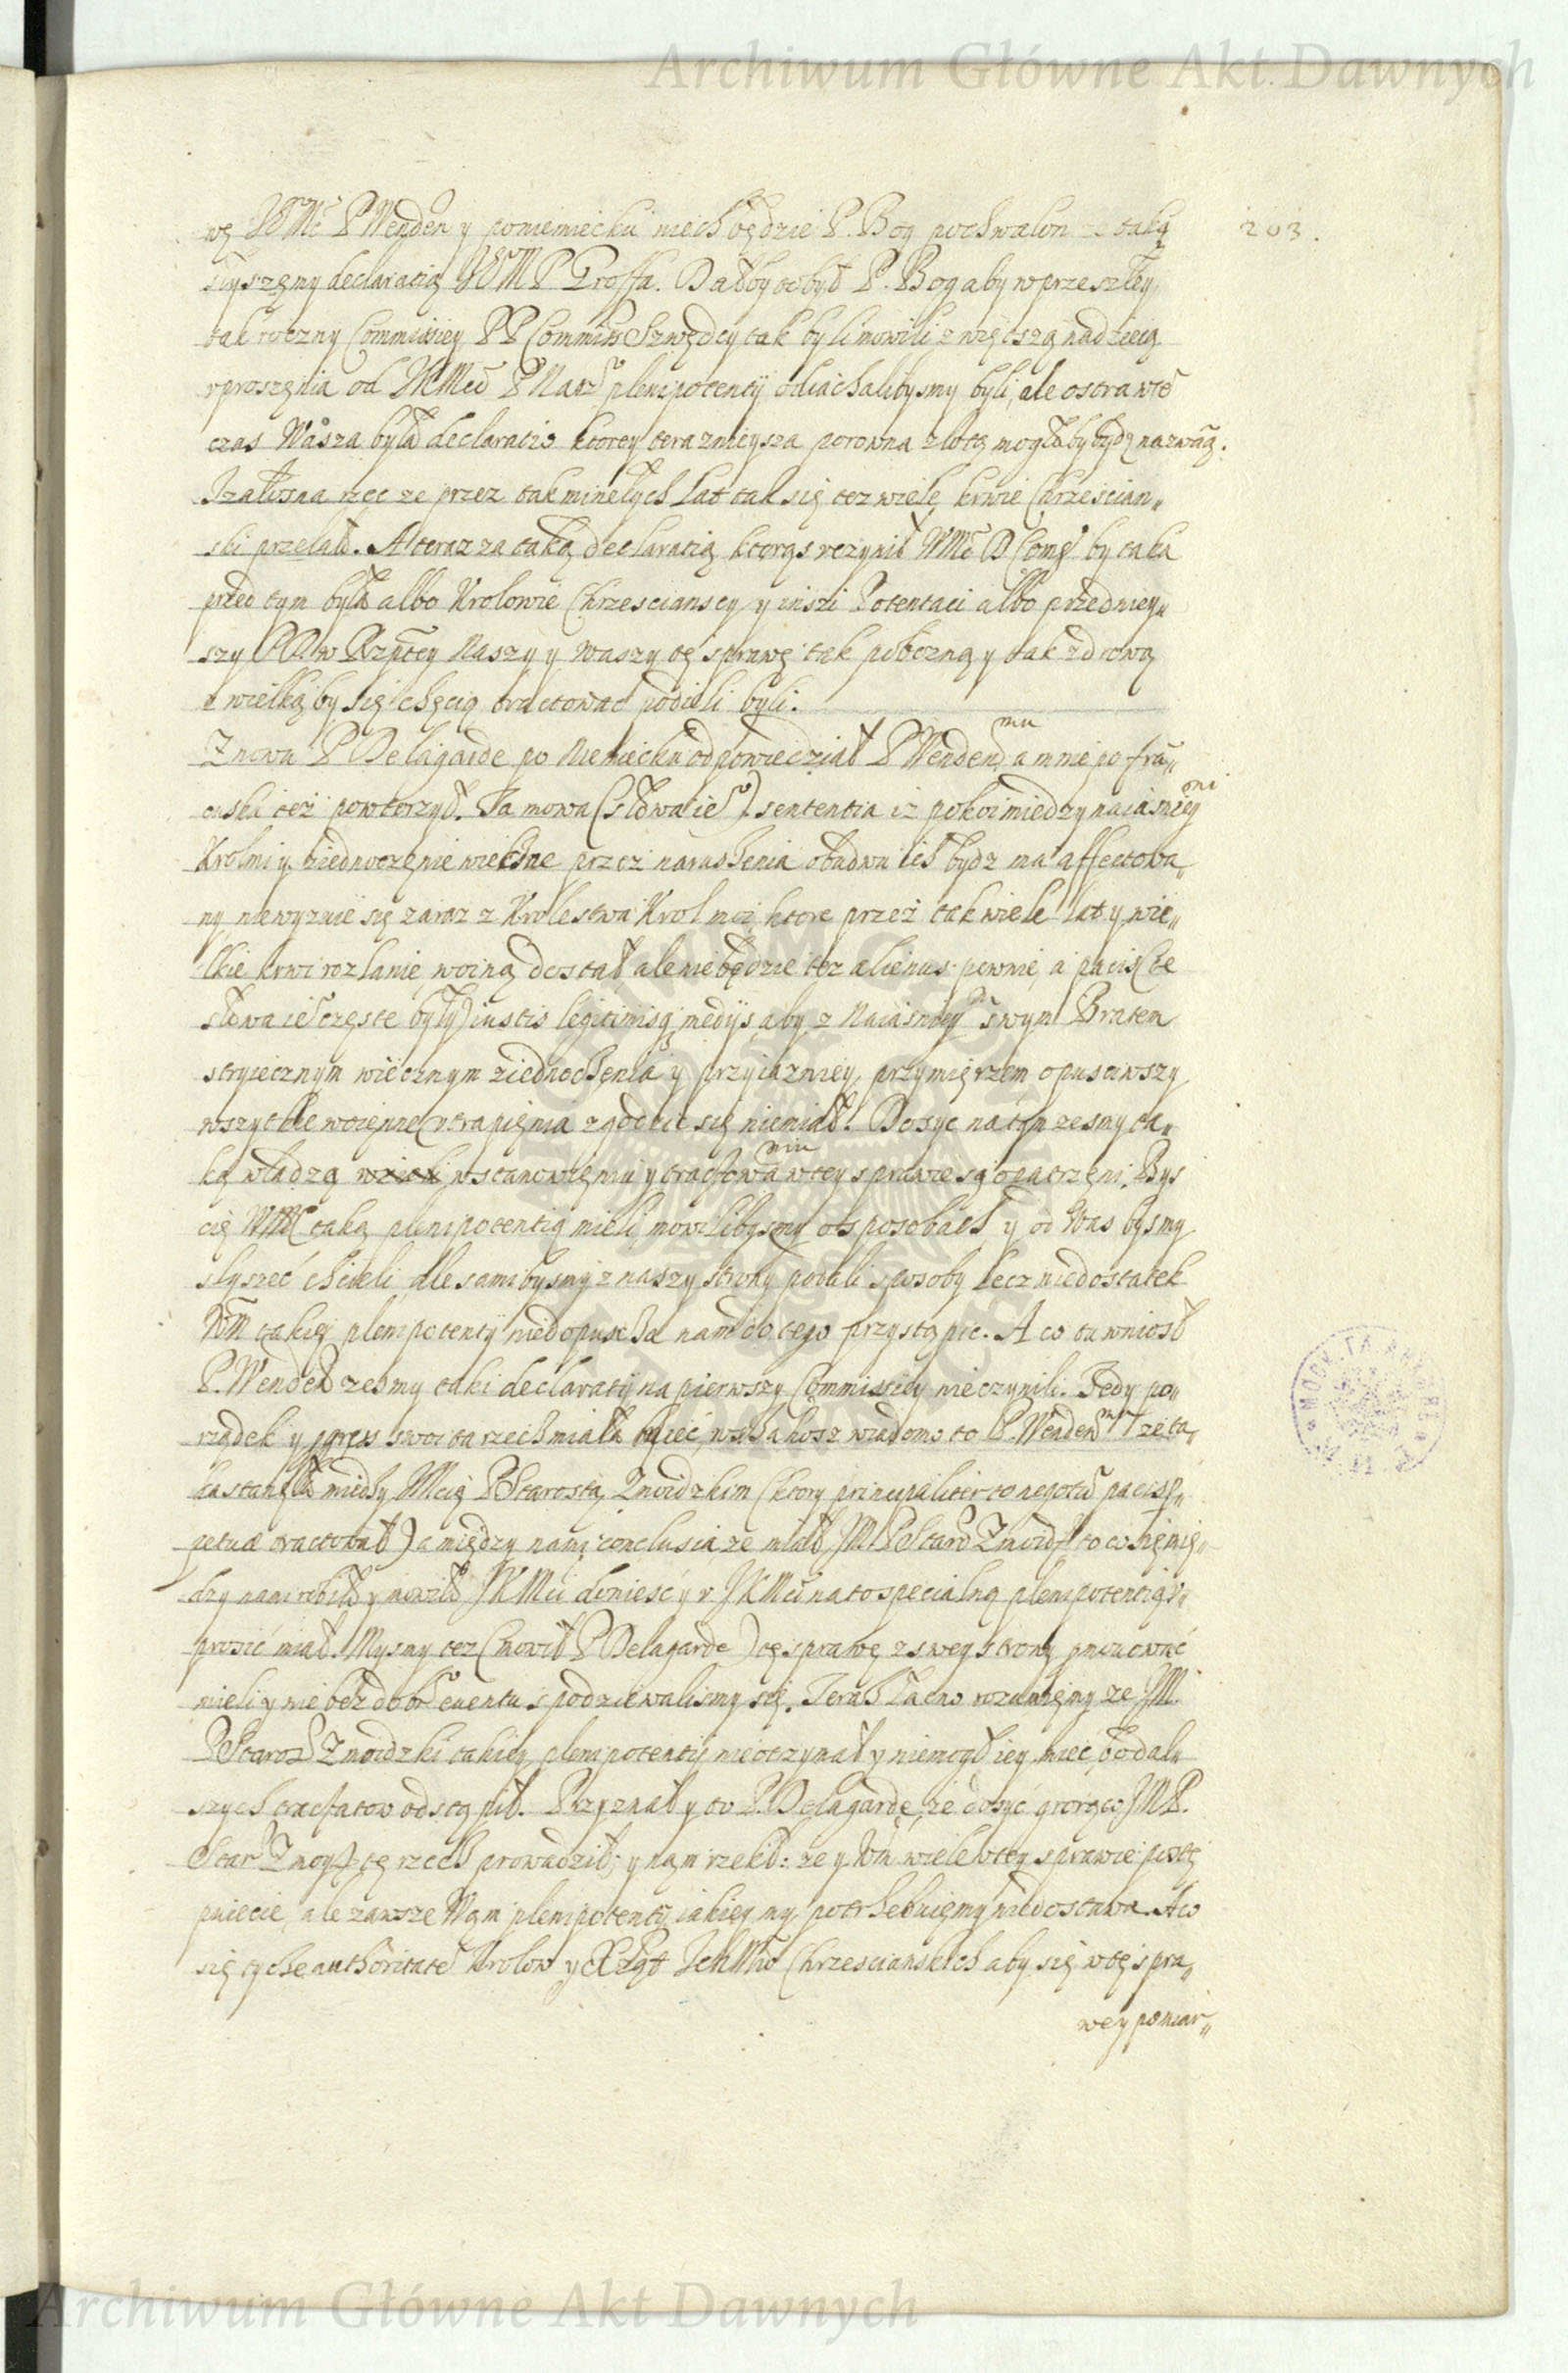 Archiwum Główne Akt Dawnych
203.
wę JWMć P Wenden y poniemiecku niech będzie P. Bog pochwalon ze taką
słyszęmy declaratią JWM P Groffa. Dałby tobył P. Bog aby wprzeszłey
takroczny Commissiey PP Commiss Szwędcy tak byli mowili z więtszą nadzieią
vproszęnia od JKMci P Nasz plenipotentij odiachalibysmy byli, ale ostra wte
czas Wasza była declaratio ktorey teraznieysza porowna złotą mogłaby bydz nazwaną.
Izałosna rzec ze przez tak minełych lat tak się tez wiele krwie Chrzescian„
ski przelało. A teraz za taką declaratią ktorąs vczynił WMć P Comes by taka
przed tym była albo Krolowie Chrzescianscy y inszi Potentaci albo przedniey„
szy PP. w Rzptey Naszy y Waszy tę sprawę tak pobozną y tak zdrową
z wielką by się chęcią tractowac podieli byli.
Znowu P Delagarde po Niemiecku odpowiedział P Wendenomu a mnie po fra„
cusku też powtorzył. Ta mowa (słowa ieº) sententia iz pokoi miedzy naiasnieyszmi
Krolmi y ziednoczęnie wieczne przez naruszenia obudwu ich bydz ma affectowa„
ny, niewyzuie się zaraz z Krolestwa Krol moi, ktore przez tak wiele lat y wie„
lkie krwi rozlanie, woiną dostał ale nie będzie tez alienus pewnie, a pacis (te
słowa ieº częste były) iustis legitimisq medijs aby z Naiasnieyszym swym Bratem
stryiecznym wiecznym ziednoczenia y przyiazniey przymięrzem opusciwszy
wszytkie woięnne vtrapięnia zgodzic się niemiał. Dosyc na tym zesmy ta„
ką władzą wstanowięniu y tractowaniu wtey sprawie są opatrzeni. Bys
cie WMć taką plenipotentią mieli, mowilibysmy o sposobach y od Was bysmy
słyszeć chcieli, ale samibysmy z naszy strony podali sposoby lecz niedostatek
WM takiey plenipotentij niedopuscza nam do tego przystąpic. A co tu wniosł
P. Wenden zesmy taki declaratij na pierwszy Commissiey nieczynili. Tedy po„
rządek y progress swoi ta rzecz miała miéc, wszakosz wiadomo to P. Wendenowi ze ta„
ka stanęła miedzy JMcią P Starostą Zmoidzkim (ktory principaliter to negotiũ pacis p„
petuæ tractował) a między nami conclusia ze miał JM P Staro Zmoidz to co się mię„
dzy nami robiło y mowiło JKMci donieść y v JKMci na to specialną plenipotentią v„
prosić miał. Mysmy tez (mowił P Delagarde) tę sprawę z swey strony promować
mieli y nie bez dobrº euentu spodziewalismy się. Teraz łacno rozumięmy ze JM.
P Starosta Zmoidzki takiey plenipotentij nieotrzymał y niemogł iey mieć, bo dal„
szych tractatow odstąpił. Przyznał y to P. Delagarde, że dosyć gorąco JM P.
Star Zmoy tę rzecz prowadził; y nam rzekł: ze y Wm wiele wtey sprawie postę
puiecie, ale zawsze Wam plenipotentij iakiey my potrzebuięmy niedostawa. A co
się tycze authoritatẽ Krolow y Xżąt Ich Mow Chrzescianskich aby się wtę spra„
wę y pomiar„
Archiwum Główne Akt Dawnych